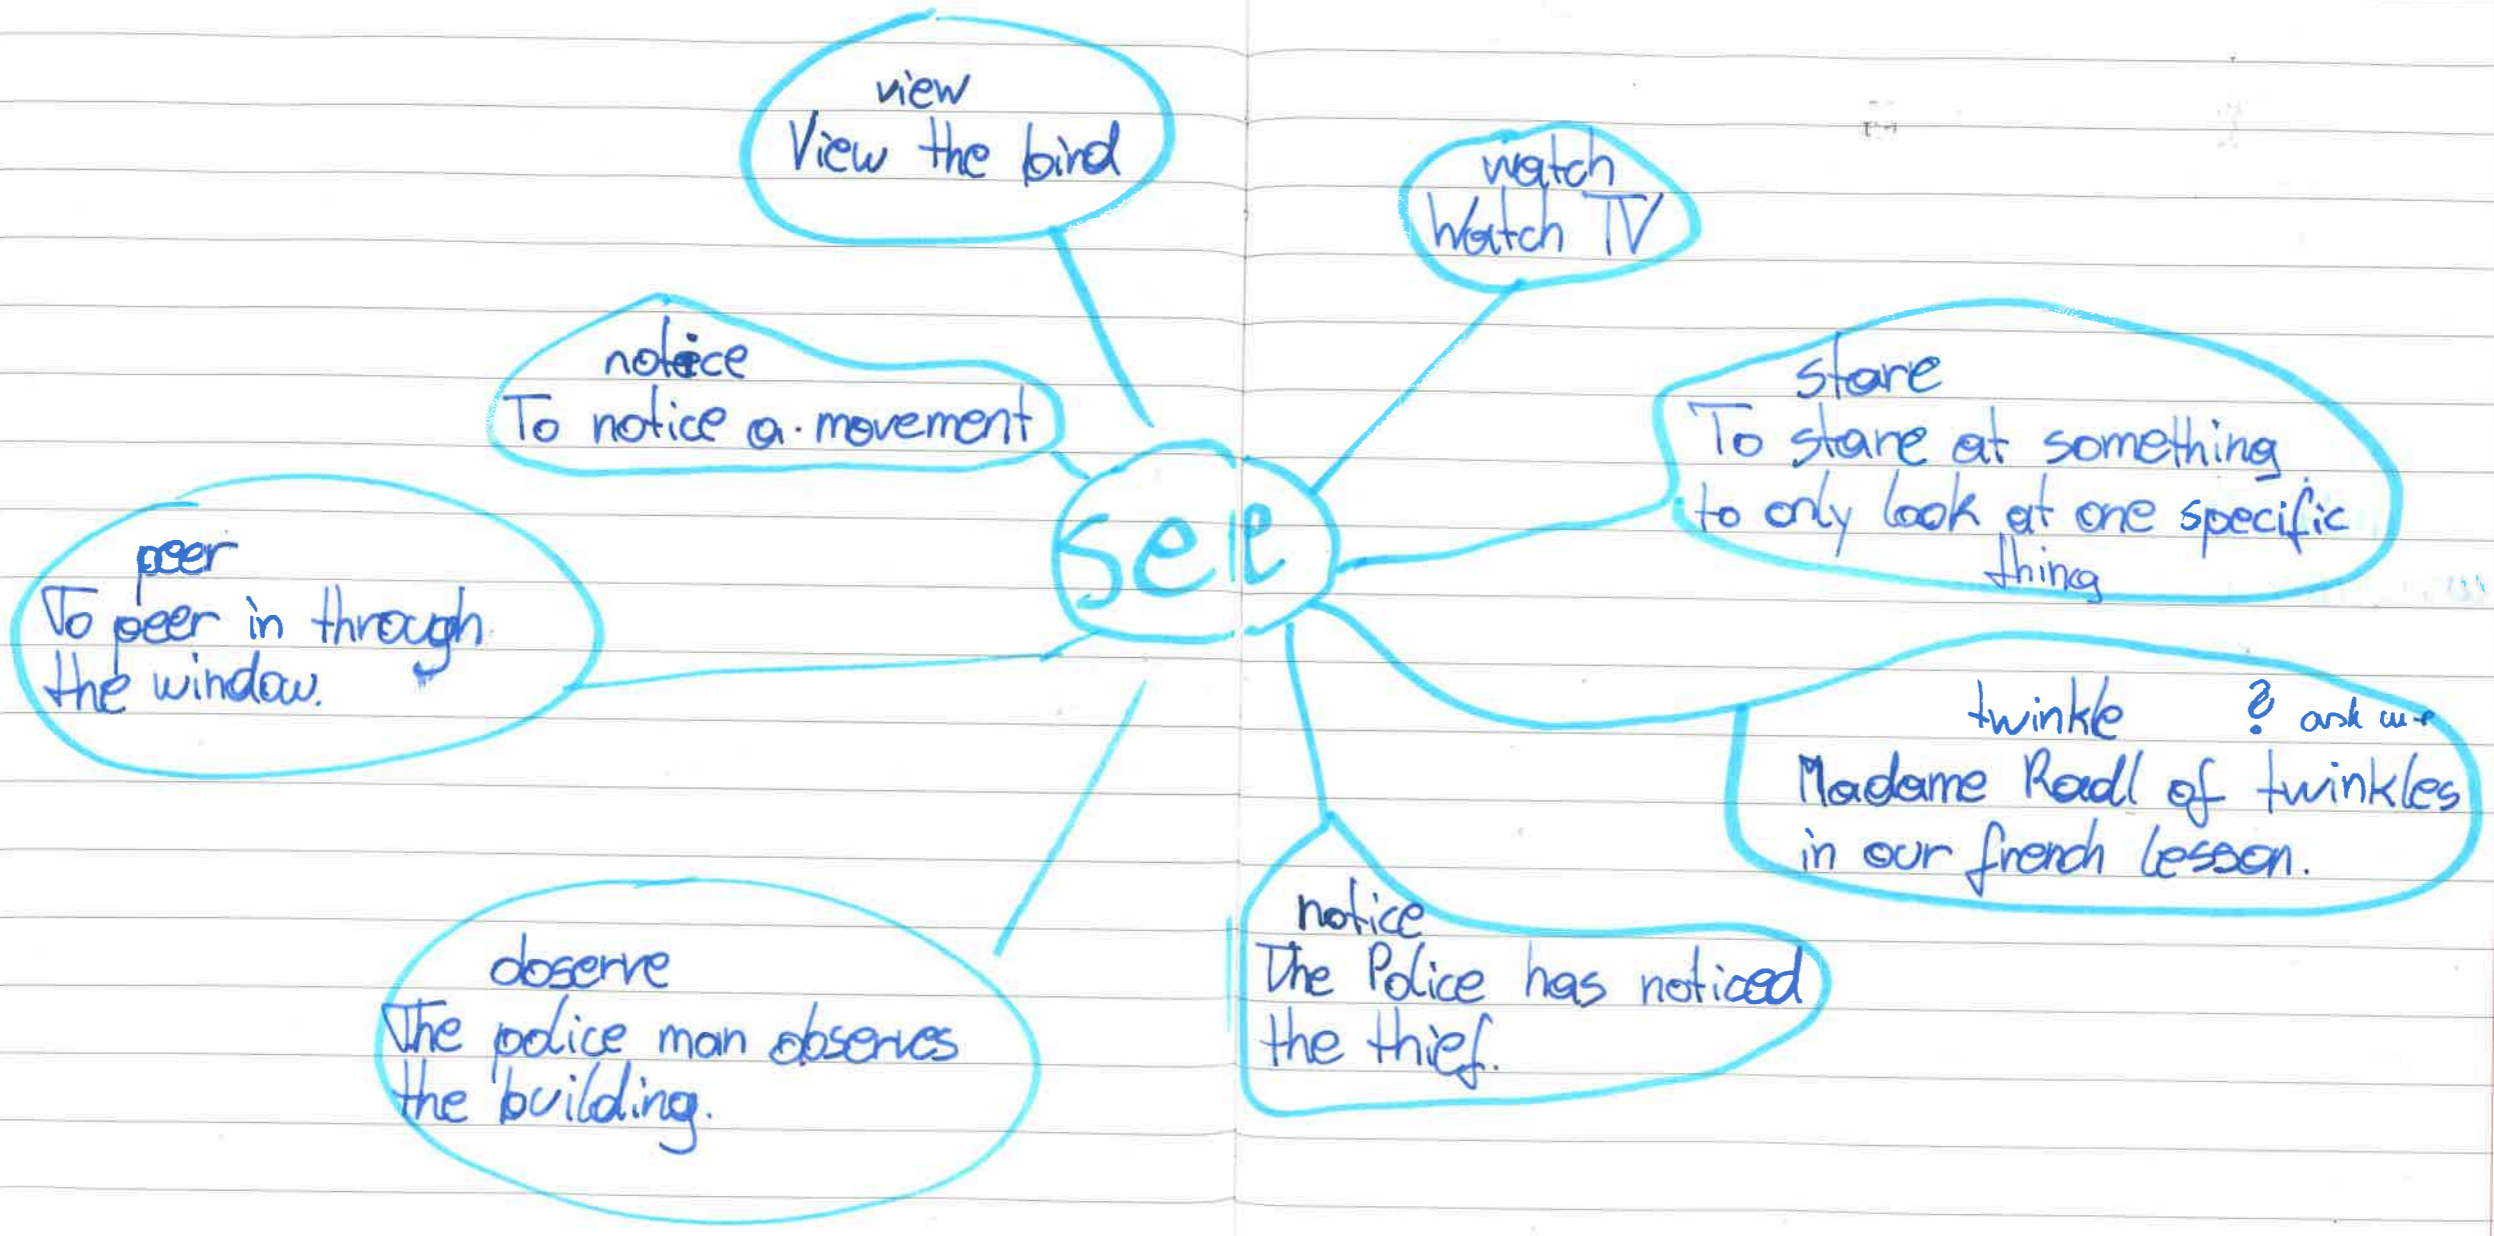 view
View the bird
watch
Watch TV
notice
To notice a movement
stare
To stare at something
to only look at one specific
thing
see
peer
To peer in through
the window.
twinkle ? ask me
Madame Radl of twinkles
in our french lesson.
notice
The Police has noticed
the thief.
observe
The police man observes
the building.